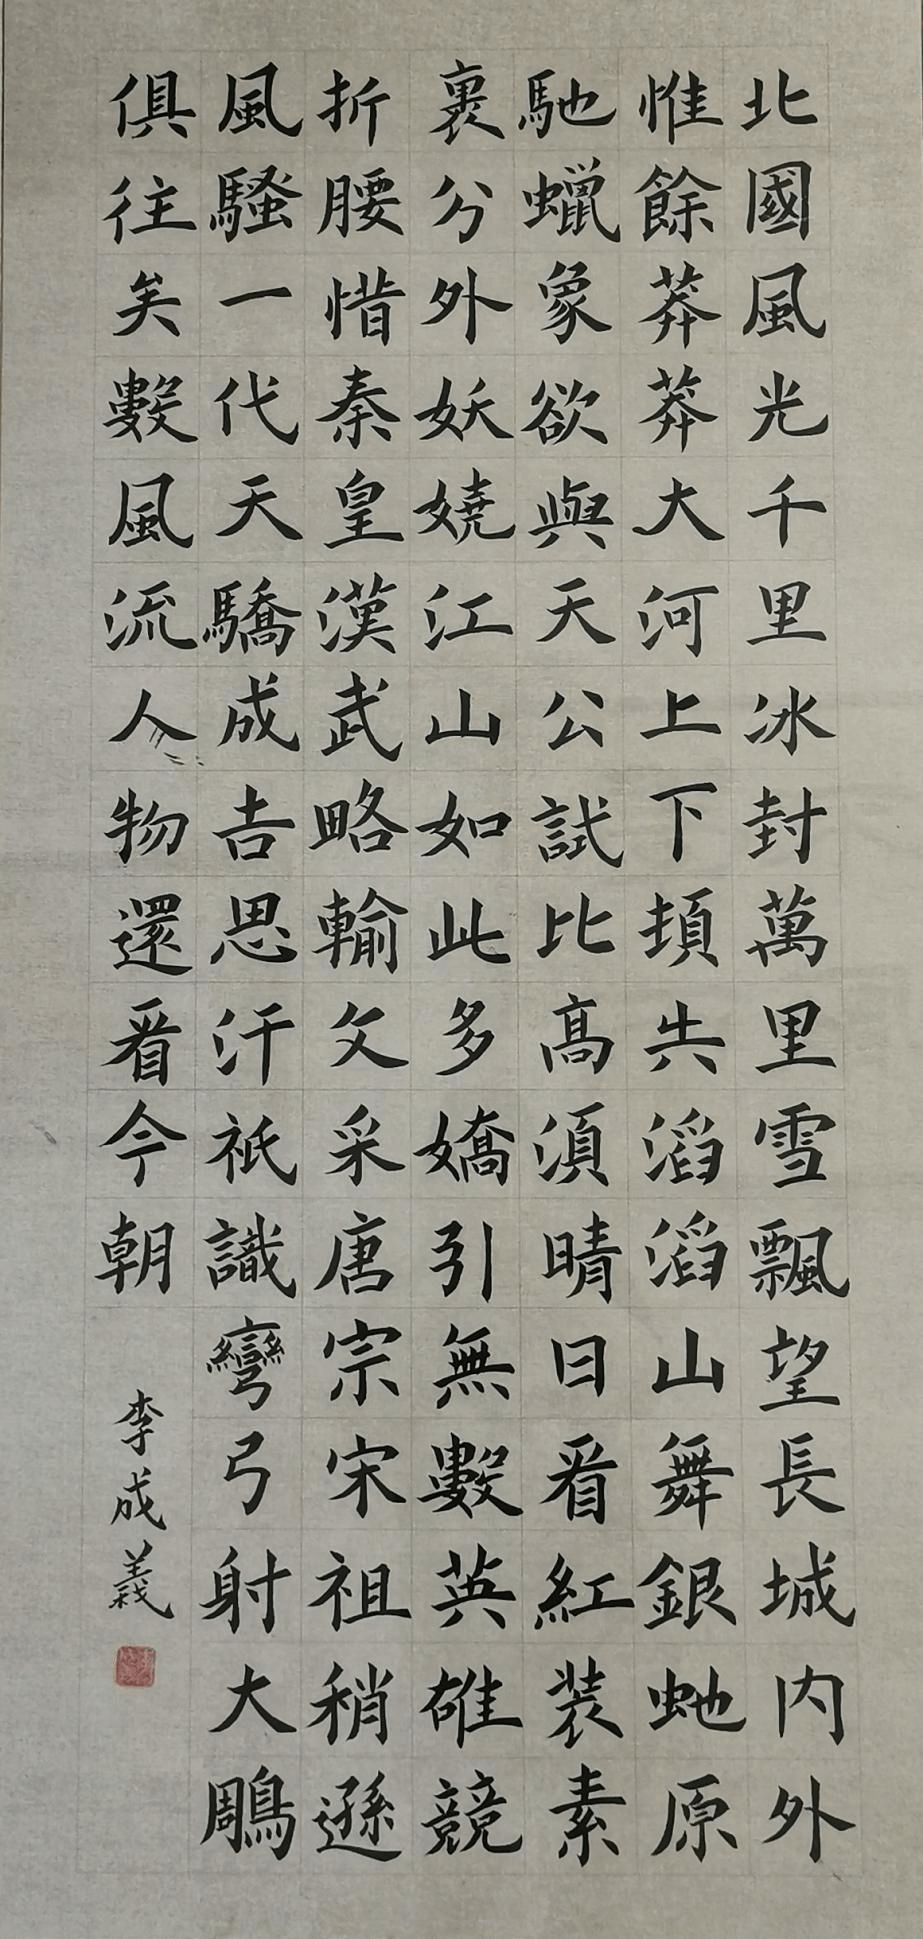 北國風光千里冰封萬里雪飄望長城内外
惟餘莽莽大河上下頓共滔滔山舞銀虵原
馳蠟象欲與天公試比高須晴日看紅裝素
裹分外妖嬈江山如此多嬌引無數英雄競
折腰惜秦皇漢武略輸文采唐宗宋祖稍遜
風騷一代天驕成吉思汗祇識彎弓射大鵰
俱往矣數風流人物還看今朝
李成義